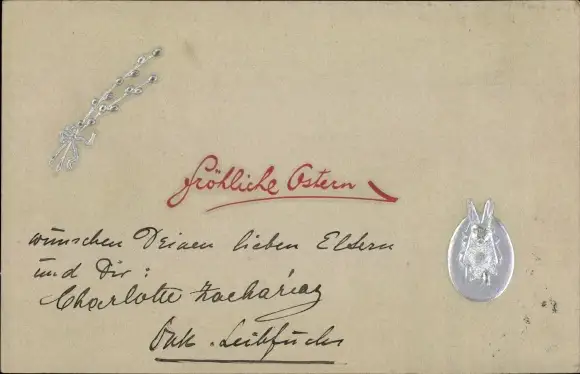 Fröhliche Ostern
wünschen Deinen lieben Eltern
und Dir:
Charlotte Zacharias